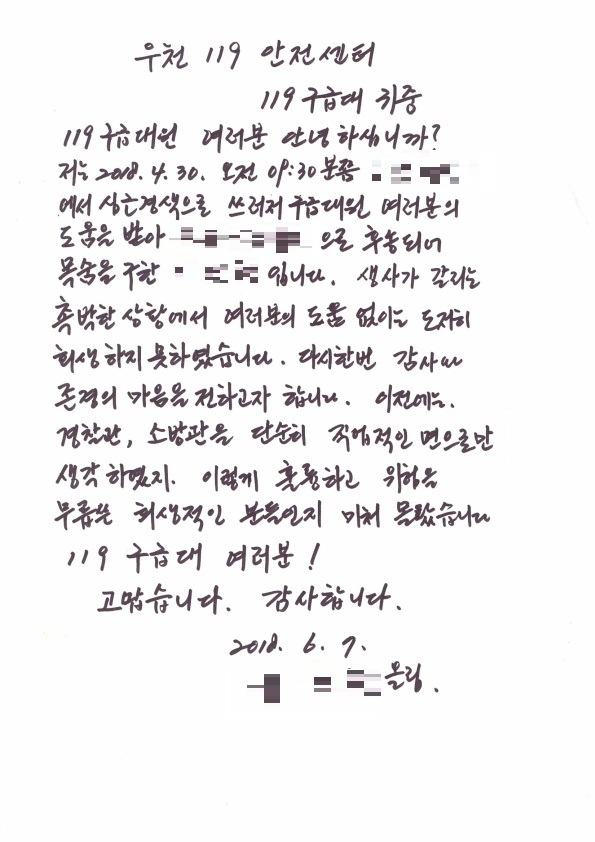 우천 119 안전센터
119구급대 귀중
119구급대원 여러분 안녕하십니까?
저는 2018. 4. 30. 오전 09:30분쯤
에서 심근경색으로 쓰러져 구급대원 여러분의
도움을 받아 으로 후송되어
목숨을 구한 입니다. 생사가 갈리는
촉박한 상황에서 여러분의 도움 없이는 도저히
회생하지 못하였습니다. 다시한번 감사와
존경의 마음을 전하고자 합니다. 이전에는.
경찰관, 소방관을 단순히 직업적인 면으로만
생각하였지. 이렇게 훌륭하고 위험을
무릅쓴 희생적인 분들인지 미처 몰랐습니다
119 구급대 여러분!
고맙습니다. 감사합니다.
2018. 6. 7.
올림.